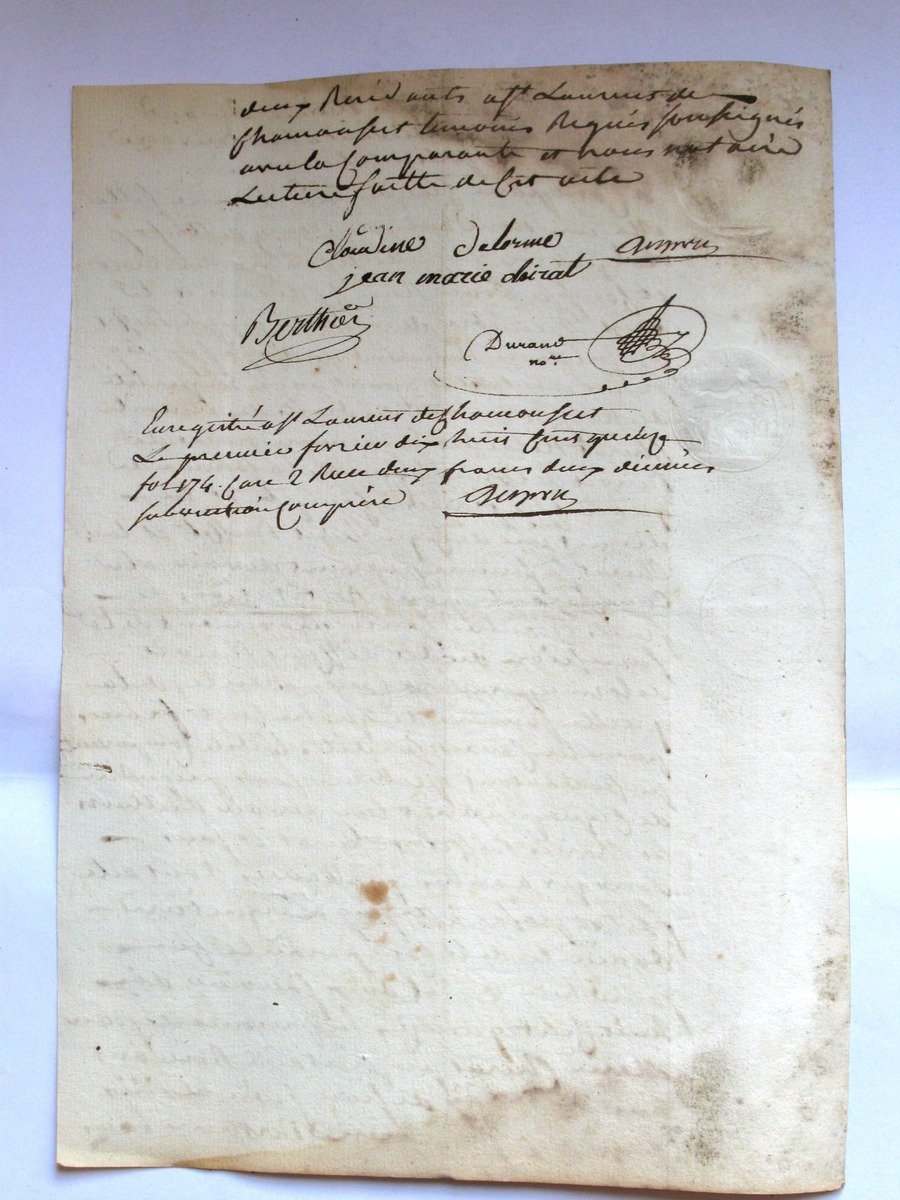 deux Residants à St Laurent de
Chamousset temoins Requis soussignés
avec la Comparante et nous notaire
Lecture faitte de Cet acte
Claudine Delorme
jean marie chirat
Berthier
Durand
nore.
Enregistré à St Laurent de Chamousset
Le premier fevrier dix huit Cent quinze
fol 174. Case 2 Recu deux francs deux decimes
subvention Comprise